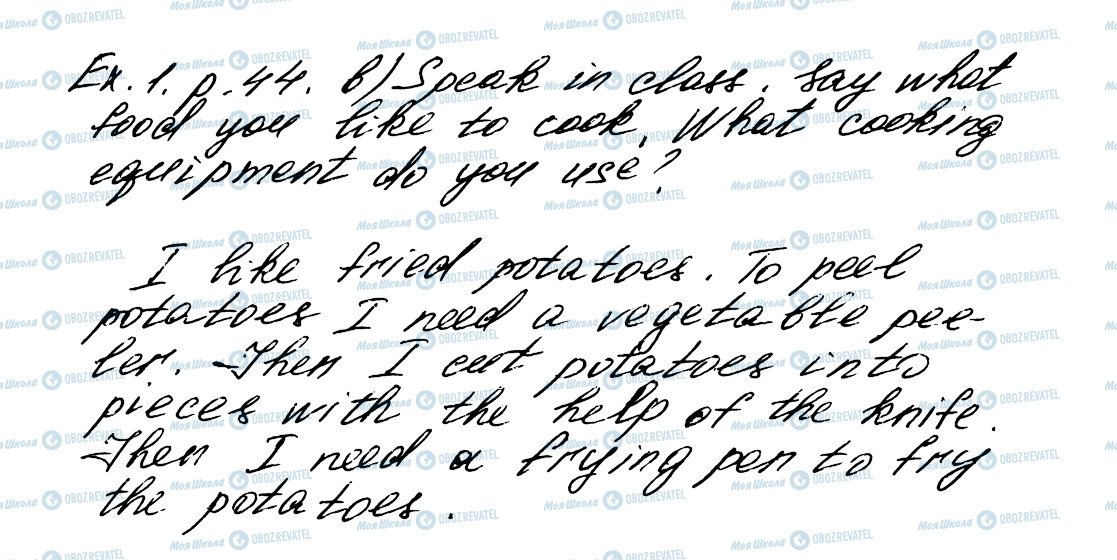 Ex. 1. p. 44. b) Speak in class. Say what
food you like to cook. What cooking
equipment do you use?
I like fried potatoes. To peel
potatoes I need a vegetable pee-
ler. Then I cut potatoes into
pieces with the help of the knife.
Then I need a frying pen to fry
the potatoes.